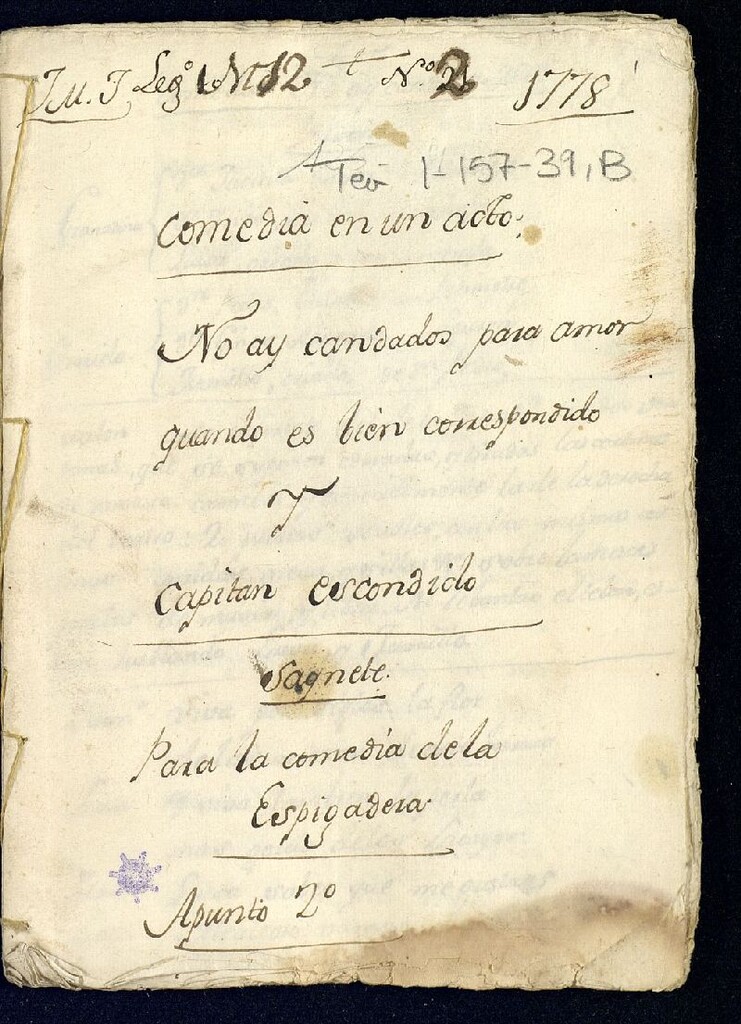 Leg.º 1 N 12 t N.º 2 1778
Tea 1-157-39, B
Comedia en un acto.
No ay candados para amor
quando es bien correspondido
Y
Capitan escondido
Saynete.
Para la comedia de la
Espigadera.
Apunto 2º